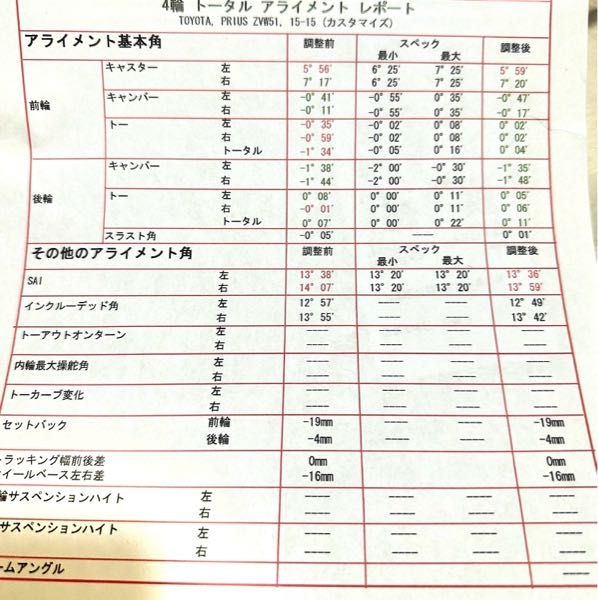 4輪 トータル アライメント レポート
TOYOTA, PRIUS ZVW51, 15-15 (カスタマイズ)
アライメント基本角 調整前 スペック 調整後
最小 最大
前輪
キャスター 左 5° 56' 6° 25' 7° 25' 5° 59'
右 7° 17' 6° 25' 7° 25' 7° 20'
キャンバー 左 -0° 41' -0° 55' 0° 35' -0° 47'
右 -0° 11' -0° 55' 0° 35' -0° 17'
トー 左 -0° 35' -0° 02' 0° 08' 0° 02'
右 -0° 59' -0° 02' 0° 08' 0° 02'
トータル -1° 34' -0° 05' 0° 16' 0° 04'
後輪
キャンバー 左 -1° 38' -2° 00' -0° 30' -1° 35'
右 -1° 44' -2° 00' -0° 30' -1° 48'
トー 左 0° 08' 0° 00' 0° 11' 0° 05'
右 -0° 01' 0° 00' 0° 11' 0° 06'
トータル 0° 07' 0° 00' 0° 22' 0° 11'
スラスト角 -0° 05' ---- 0° 01'
その他のアライメント角 調整前 スペック 調整後
最小 最大
SAI 左 13° 38' 13° 20' 13° 20' 13° 36'
右 14° 07' 13° 20' 13° 20' 13° 59'
インクルーデッド角 左 12° 57' ---- ---- 12° 49'
右 13° 55' ---- ---- 13° 42'
トーアウトオンターン 左 ---- ---- ---- ----
右 ---- ---- ---- ----
内輪最大操舵角 左 ---- ---- ---- ----
右 ---- ---- ---- ----
トーカーブ変化 左 ---- ---- ---- ----
右 ---- ---- ---- ----
セットバック 前輪 -19mm ---- ---- -19mm
後輪 -4mm ---- ---- -4mm
トラッキング幅前後差 0mm 0mm
イールベース左右差 -16mm -16mm
輪サスペンションハイト 左 ---- ---- ---- ----
右 ---- ---- ---- ----
サスペンションハイト 左 ---- ---- ---- ----
右 ---- ---- ---- ----
ームアングル ---- ----